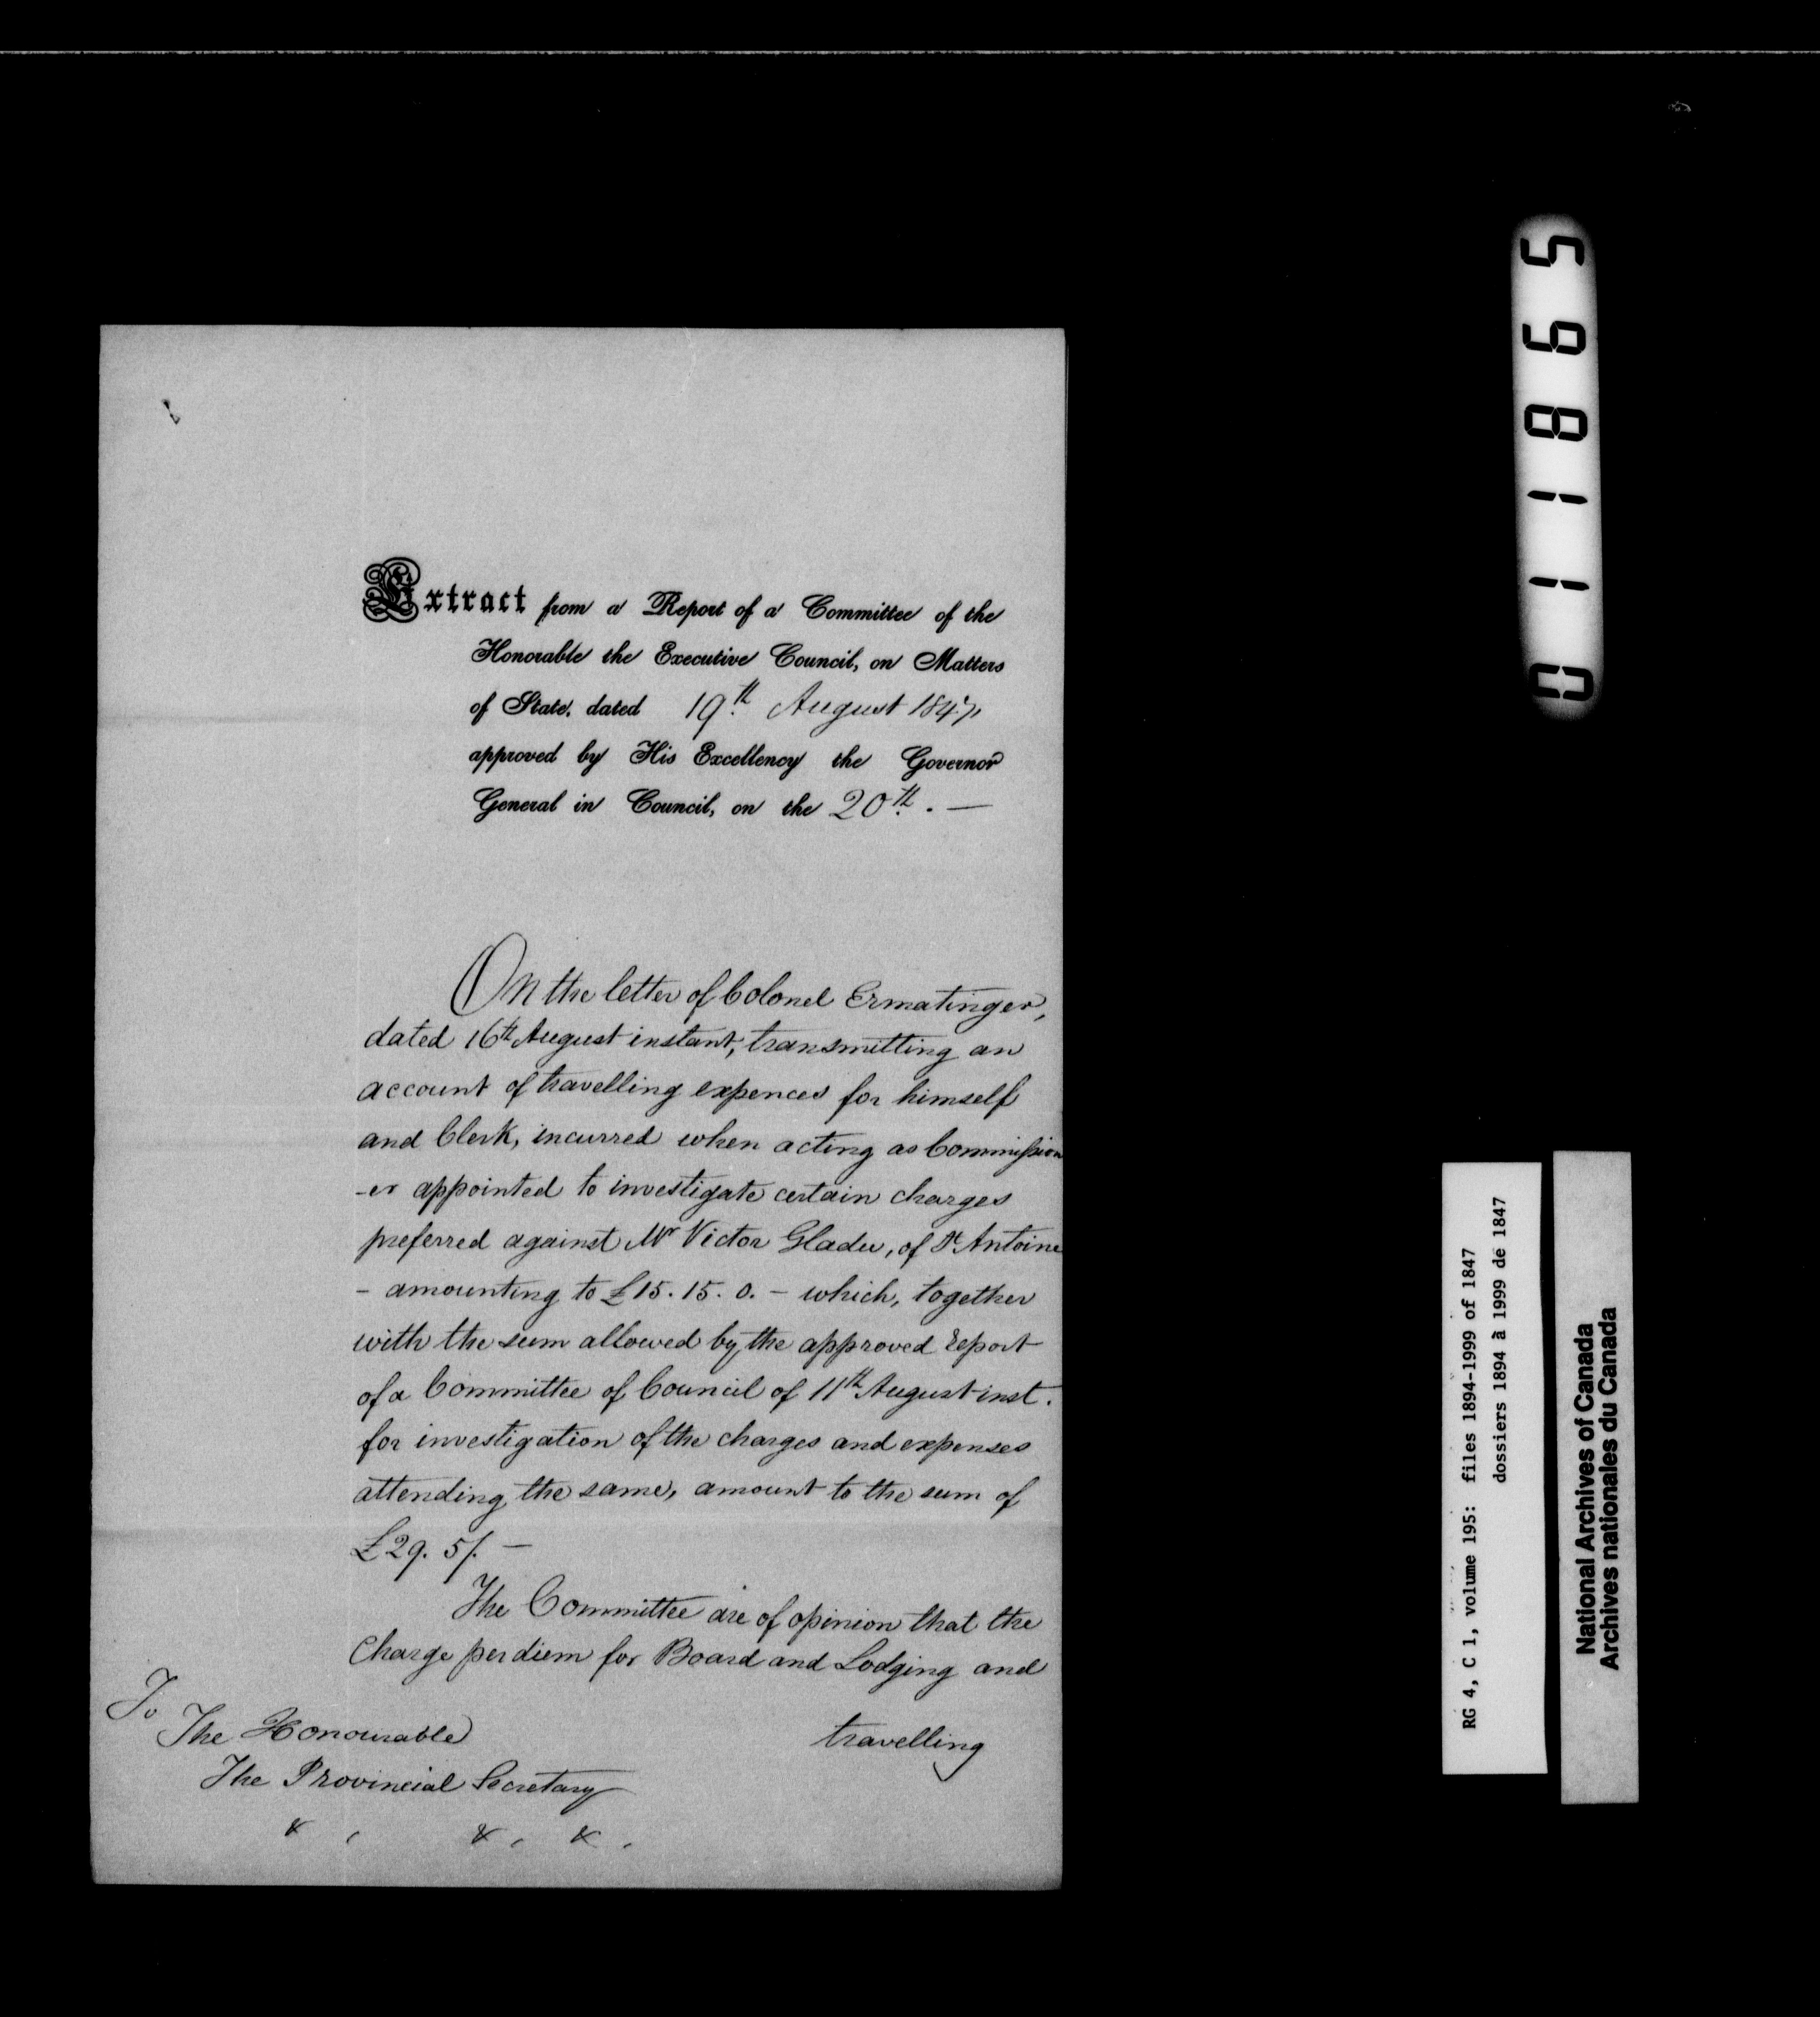 Extract from a Report of a Committee of the
Honorable the Executive Council, on Matters
of State, dated 19th August 1847,
approved by His Excellency the Governor
General in Council, on the 20th. —
On the letter of Colonel Ermatinger,
dated 16th August instant, transmitting an
account of travelling expences for himself
and Clerk, incurred when acting as Commission
-er appointed to investigate certain charges
preferred against Mr Victor Gladu, of St Antoine
- amounting to £15. 15. 0. - which, together
with the sum allowed by the approved report
of a Committee of Council of 11th August inst.
for investigation of the charges and expenses
attending the same, amount to the sum of
£29. 5/. —
The Committee are of opinion that the
Charge per diem for Board and Lodging and
travelling
To
The Honourable
The Provincial Secretary
& , &, &,
011865
RG 4, C 1, volume 195: files 1894-1999 of 1847
dossiers 1894 à 1999 de 1847
National Archives of Canada
Archives nationales du Canada